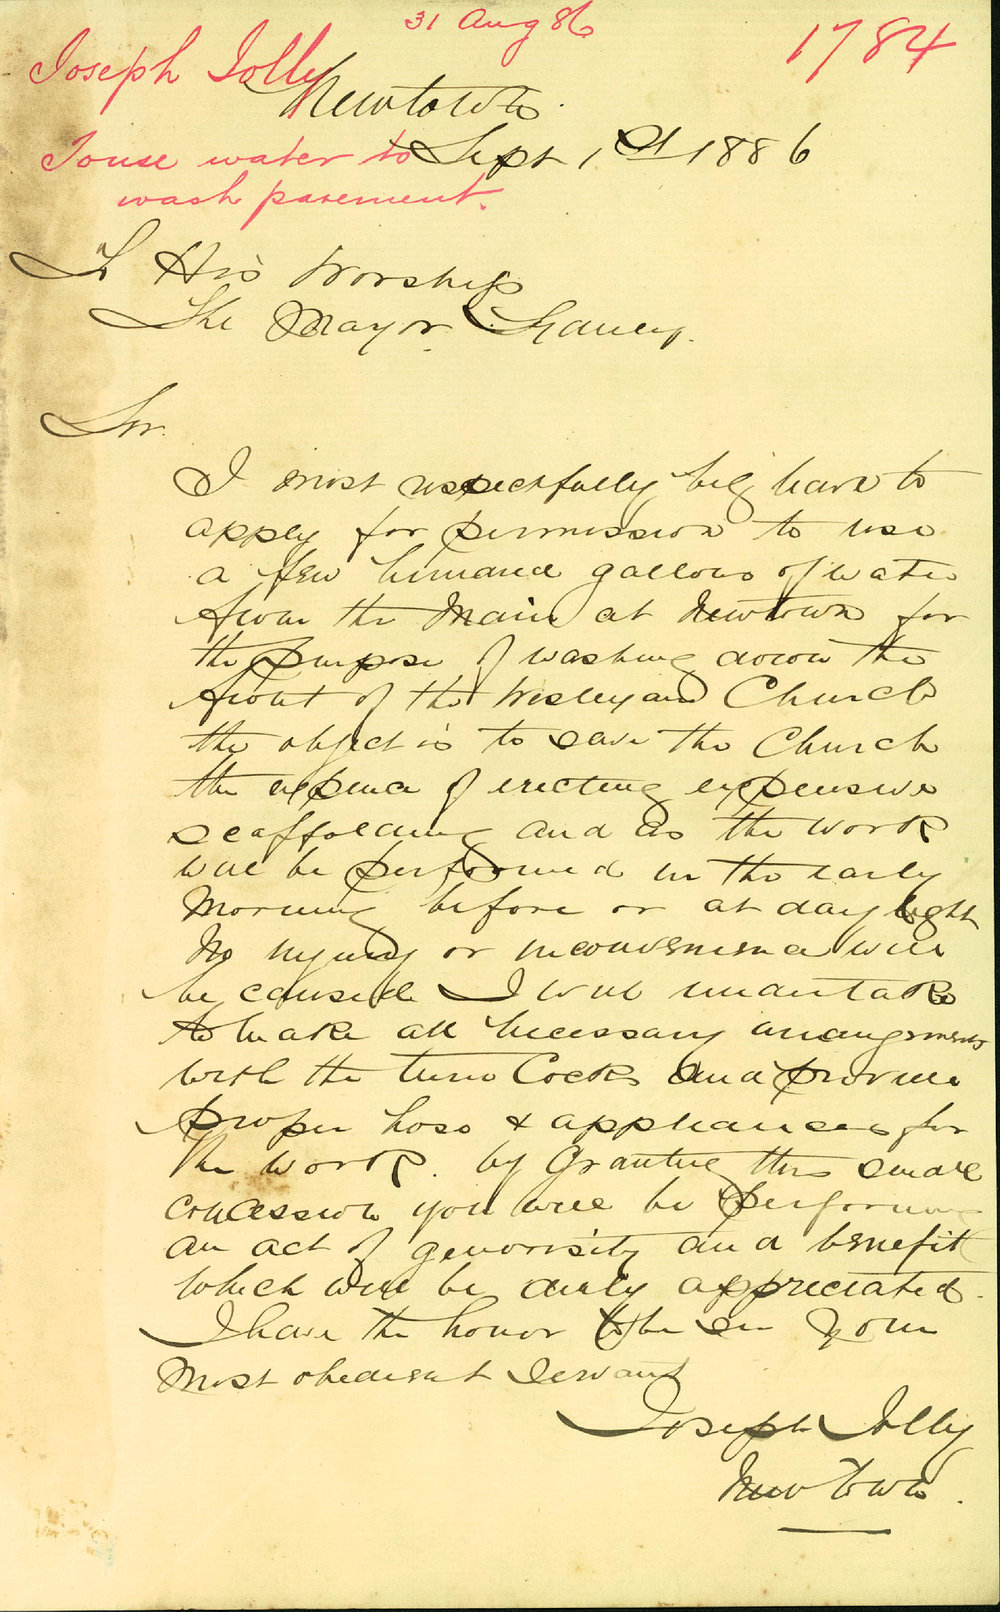 31 Aug 86
1784
Joseph Jolly
Newtown.
To use water to
Sept 1st 1886
wash pavement.
To His Worship
The Mayor. Sydney.
Sir.
I most respectfully beg leave to
apply for permission to use
a few hundred gallons of water
from the Main at Newtown for
the purpose of washing down the
front of the Wesleyan Church
the object is to save the Church
the expence of erecting expensive
scaffolding and as the work
will be performed in the early
Morning before or at day light
No injury or inconvenience will
be caused I will undertake
to make all necessary arrangements
with the turn Cocks and provide
proper hose & appliances for
the work. by Granting this small
concession you will be performing
an act of generosity and benefit
which will be duly appreciated.
I have the honor to be Sir Your
Most obedient Servant
Joseph Jolly
Newtown.